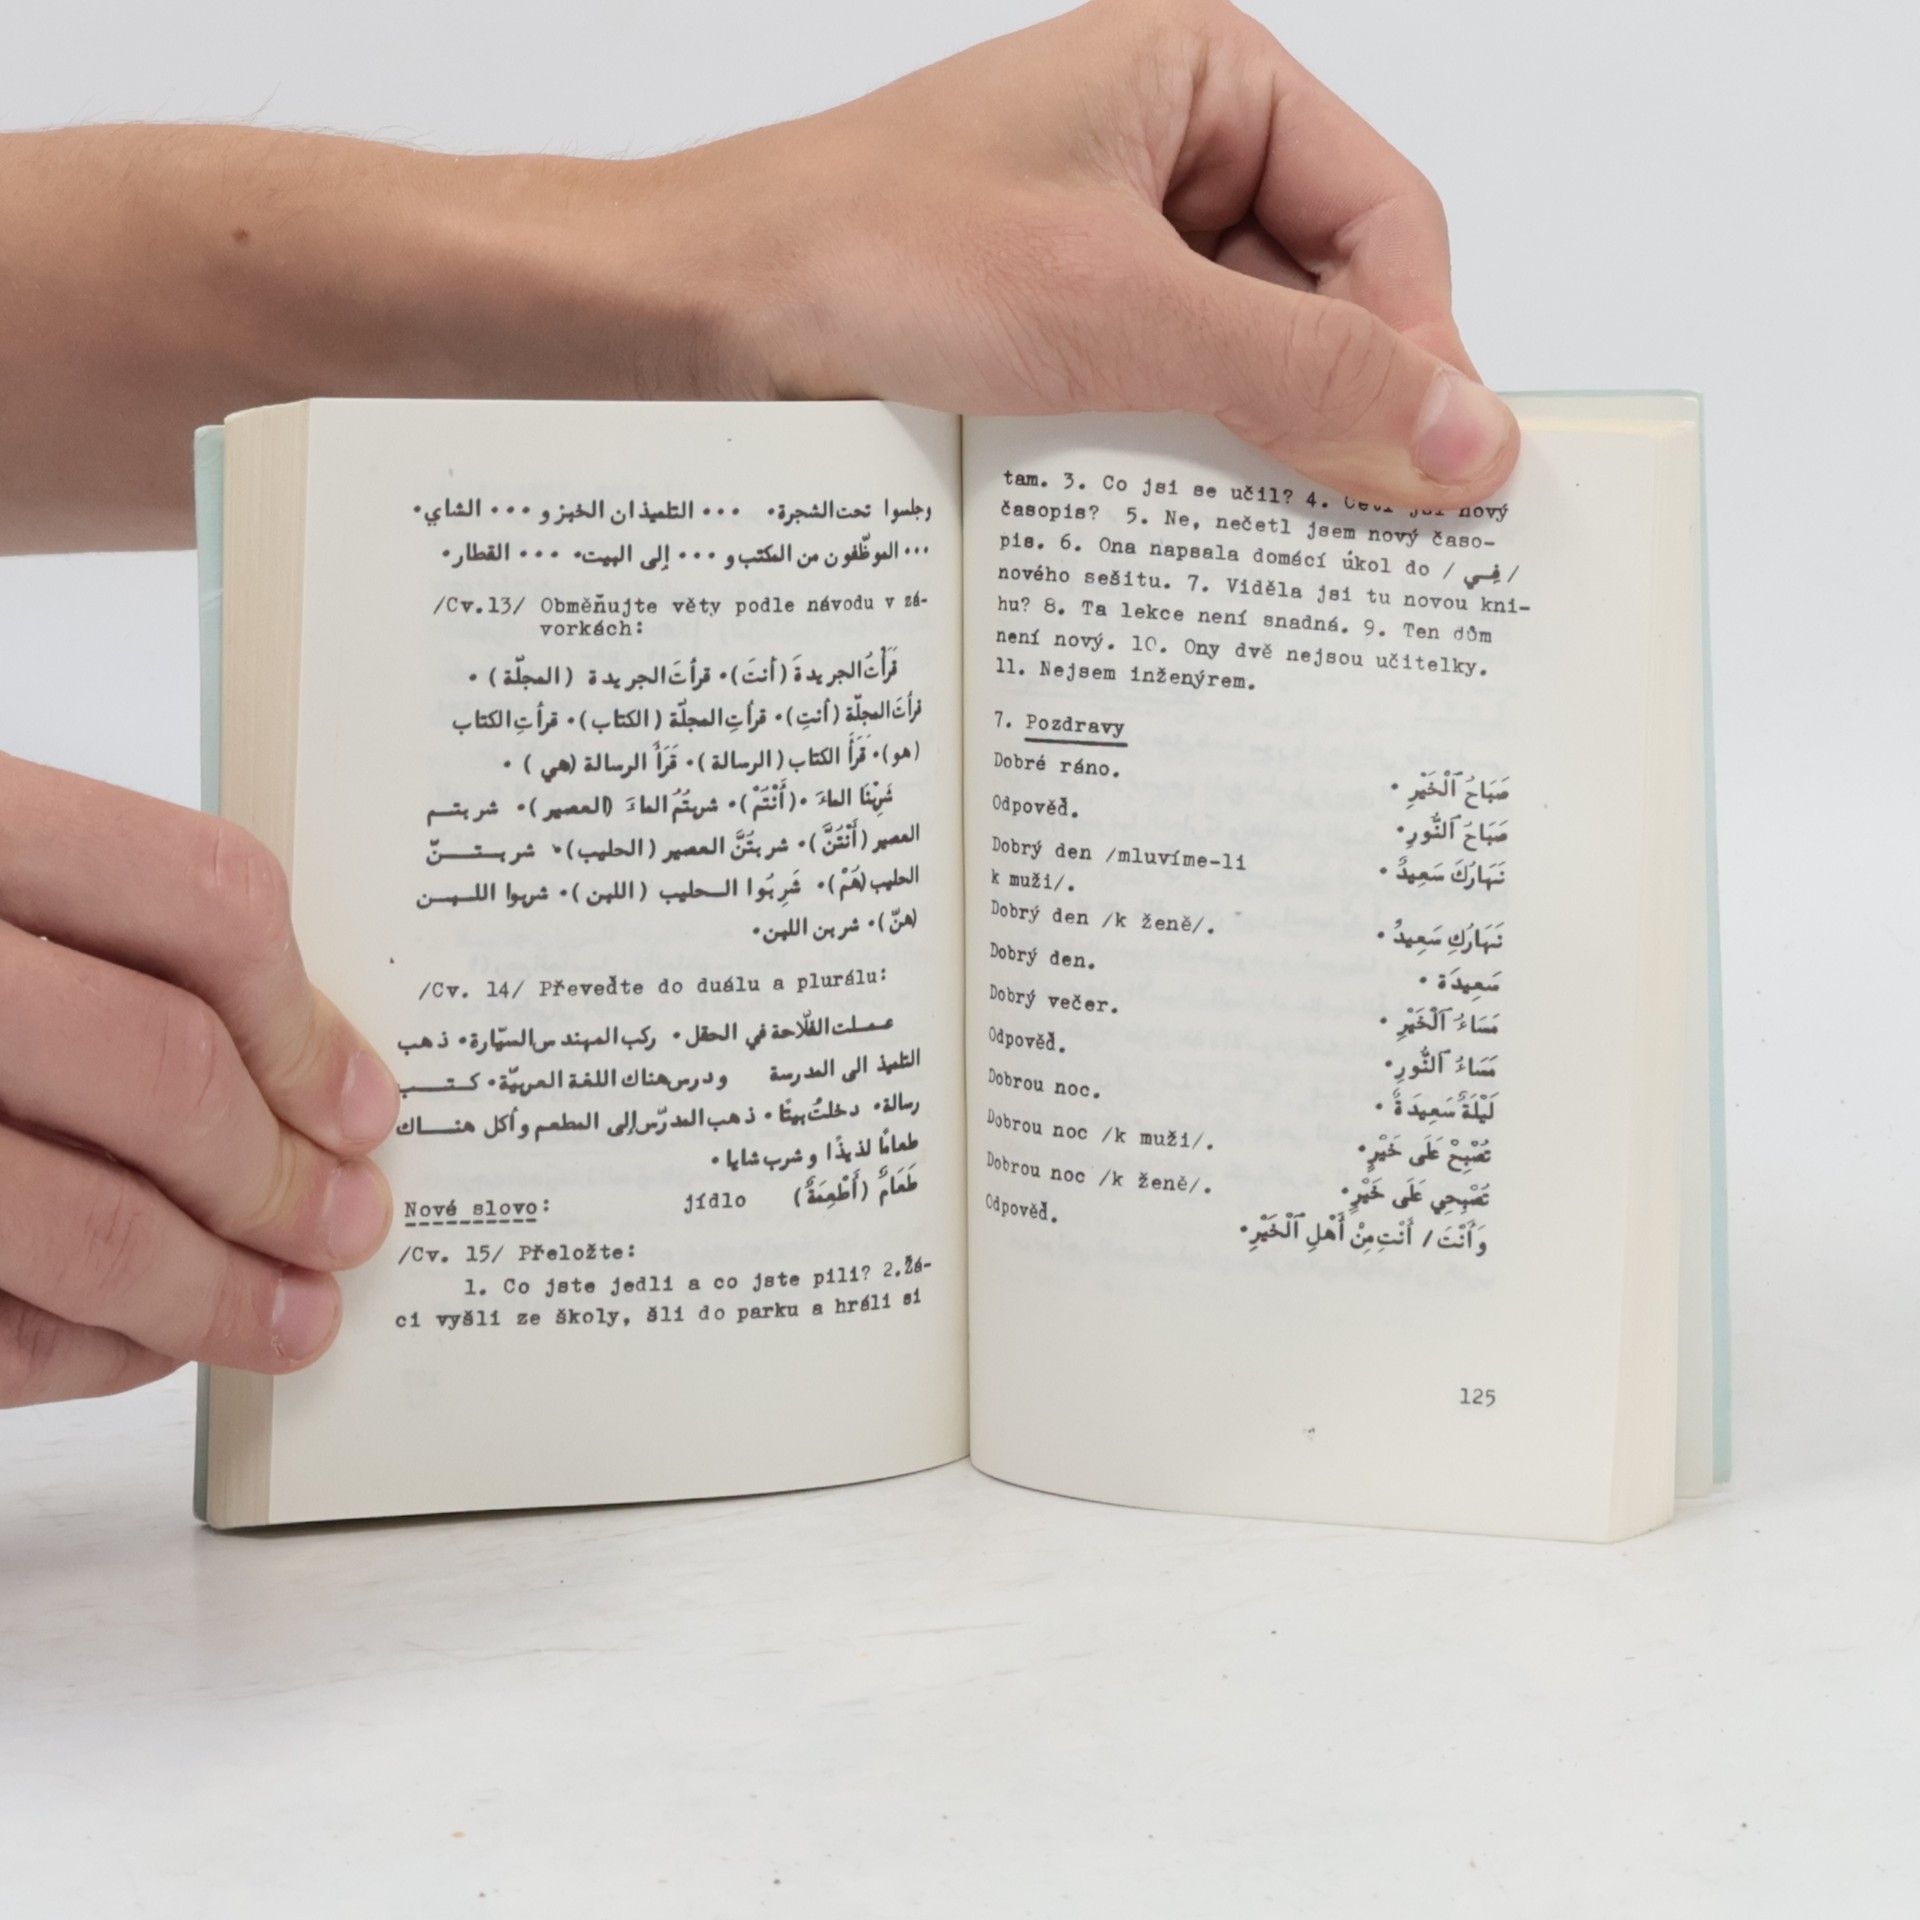 وجلسوا تحت الشجرة. ... التلميذان الخبز و ... الشاي.
... الموظّفون من المكتب و ... إلى البيت. ... القطار.
/Cv.13/ Obměňujte věty podle návodu v zá-
vorkách:
قَرَأْتُ الجريدةَ (أنتَ). قرأتَ الجريدة (المجلّة).
قرأتَ المجلّة (أنتِ). قرأتِ المجلّة (الكتاب). قرأتِ الكتاب
(هو). قَرَأَ الكتاب (الرسالة). قَرَأَ الرسالة (هي).
شَرِبْنَا الماءَ. (أَنْتُمْ). شربتُمُ الماءَ (العصير). شربتم
العصير (أَنْتُنَّ). شربتُنَّ العصير (الحليب). شربتــنّ
الحليب (هُمْ). شَرِبُوا الحليب (اللبن). شربوا اللبــن
(هنّ). شربن اللبن.
/Cv. 14/ Převeďte do duálu a plurálu:
عملت الفلّاحة في الحقل. ركب المهندس السيّارة. ذهب
التلميذ الى المدرسة ودرس هناك اللغة العربيّة. كتــب
رسالة. دخلتُ بيتًا. ذهب المدرّس إلى المطعم وأكل هنــاك
طعامًا لذيذًا وشرب شايا.
Nové slovo: jídlo طَعَامٌ (أَطْعِمَةٌ)
/Cv. 15/ Přeložte:
1. Co jste jedli a co jste pili? 2.Žá-
ci vyšli ze školy, šli do parku a hráli si
tam. 3. Co jsi se učil? 4. Četl jsi nový
časopis? 5. Ne, nečetl jsem nový časo-
pis. 6. Ona napsala domácí úkol do / فِـي /
nového sešitu. 7. Viděla jsi tu novou kni-
hu? 8. Ta lekce není snadná. 9. Ten dům
není nový. 10. Ony dvě nejsou učitelky.
11. Nejsem inženýrem.
7. Pozdravy
Dobré ráno. صَبَاحُ ٱلْخَيْرِ.
Odpověď. صَبَاحُ ٱلنُّورِ.
Dobrý den /mluvíme-li نَهَارُكَ سَعِيدٌ.
k muži/.
Dobrý den /k ženě/. نَهَارُكِ سَعِيدٌ.
Dobrý den. سَعِيدَة.
Dobrý večer. مَسَاءُ ٱلْخَيْرِ.
Odpověď. مَسَاءُ ٱلنُّورِ.
Dobrou noc. لَيْلَةٌ سَعِيدَةٌ.
Dobrou noc /k muži/. تُصْبِحْ عَلَى خَيْرٍ.
Dobrou noc /k ženě/. تُصْبِحِي عَلَى خَيْرٍ.
Odpověď. وَأَنْتَ / أَنْتِ مِنْ أَهْلِ ٱلْخَيْرِ.
125